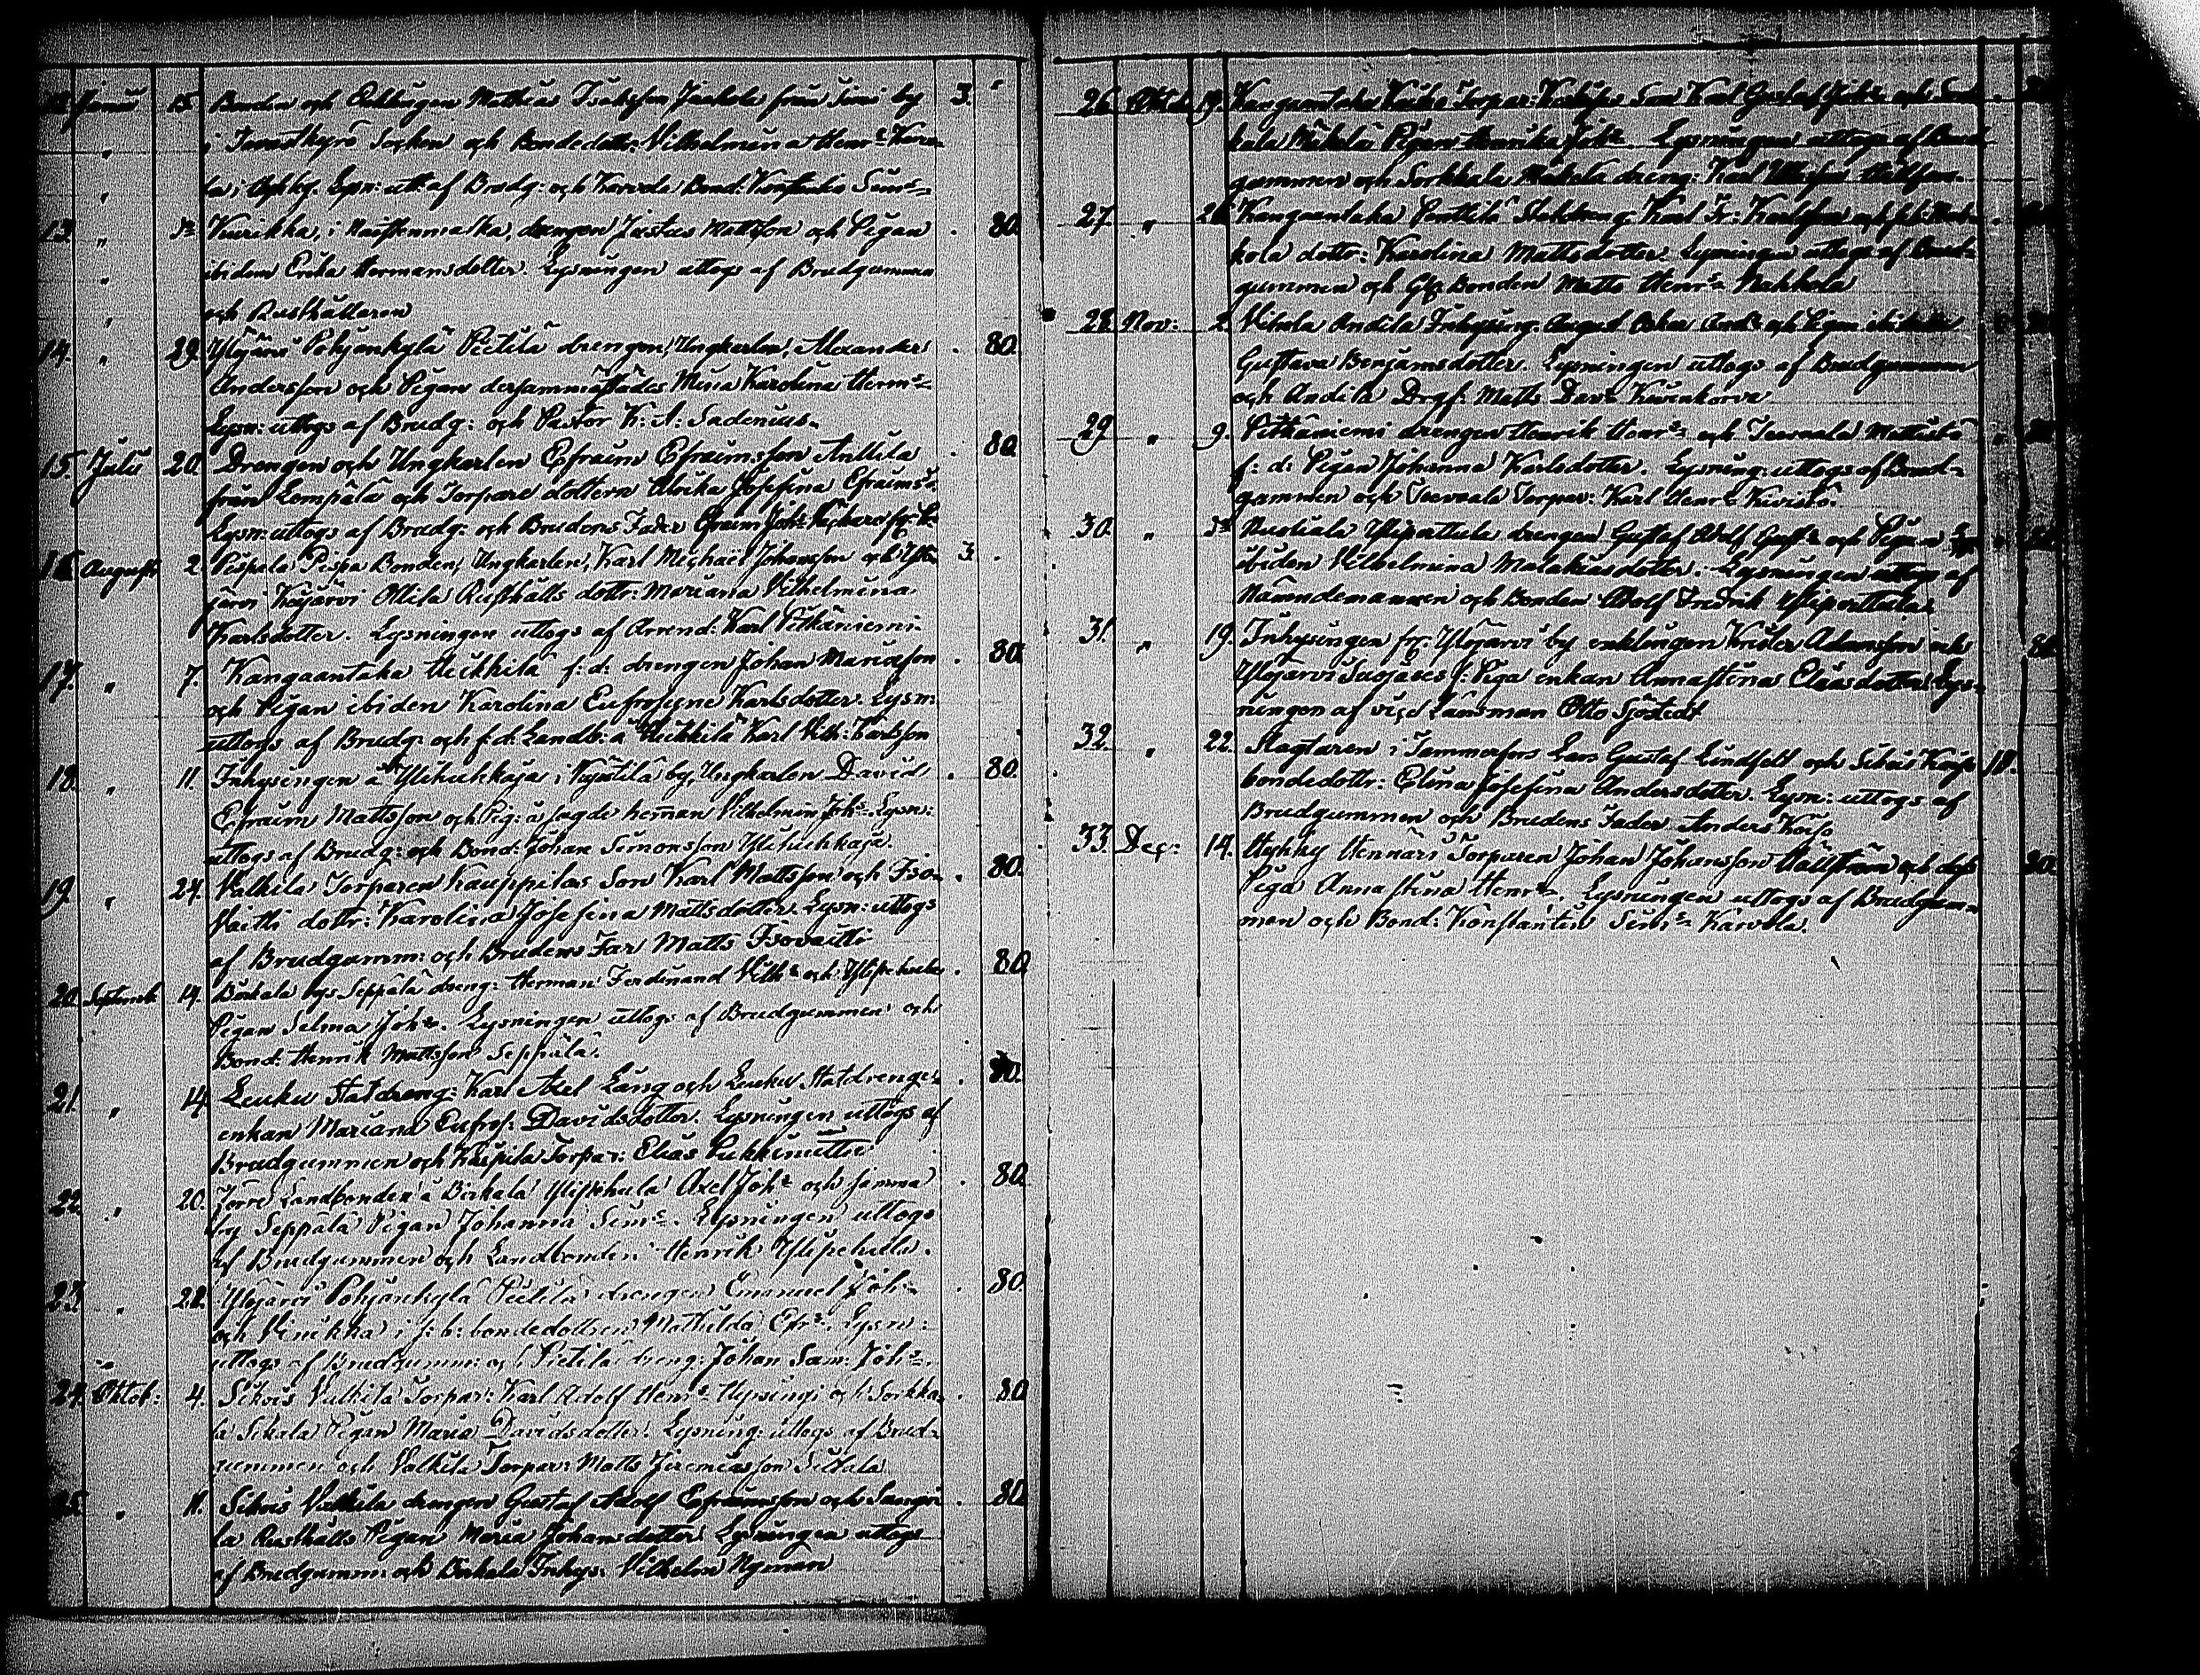 12. Junii 15. Bonden och Enklingen Mathias Isaksson Jaakola från Simi by 3. "
" i Tavastkyrö Sochen och Bondedottr: Vilhelmina Henrs: Karvo-
" la i Hyhky. Lysn: utt af Brudg: och Karvola Bond: Konstantin Sims:
13. " Dº Vinikka, i Messunmaska, drengen Justus Mattsson och Pigan . 80.
" ibidem Erika Hermansdotter. Lysningen uttogs af Brudgummen
" och Rusthållaren
14. " 29. Ylöjärvi Pohjankylä Pietilä drengen, Ungkarlen, Alexander . 80.
Andersson och Pigan dersammastädes Maria Karolina Herms:
Lysn: uttogs af Brudg: och Pastor K: A: Sadenius.
15. Julii 20. Drengen och Ungkarlen Efraim Efraimsson Anttila . 80.
från Lempälä och Torpare dottern Ulrika Josefina Efraimsd.
Lysn: uttogs af Brudg: och Brudens Fader Efraim Johs:
16. August 2. Pispala Pispa Bonden, Ungkarlen, Karl Michael Johansson och Ylö- 3. .
järvi Keijärvi Ollila Rusthålls dottr: Mariana Vilhelmina
Karlsdotter. Lysningen uttogs af Arrend: Karl Pitkäniemi.
17. " 7. Kangaantaka Heikkilä f: d: drengen Johan Mariasson . 80.
och Pigan ibidem Karolina Eufrosyne Karlsdotter. Lysn:
uttogs af Brudg: och f: d: Landb: å Heikkilä Karl Vilh: Karlsson
18. " 11. Inhysingen å Ylihuhkaja i Vestilä by, Ungkarlen David . 80.
Efraim Mattsson och Pig: å sagde heman Vilhelmin Johs: Lysn:
uttogs af Brudg: och Bond: Johan Simonsson Ylihuhkaja.
19. " 24. Valkila Torparen Kauppilas Son Karl Mattsson och Iso- . 80.
vaitti dottr: Karolina Josefina Mattsdotter. Lysn: uttogs
af Brudgumm: och Brudens Far Matts Isovaitti
20. Septemb 14. Birkala bys Seppälä dreng: Herman Ferdinand Vilhs: och Ylipehula . 80.
Pigan Selma Johs:. Lysningen uttogs af Brudgummen och
Bond: Henrik Mattsson Seppälä.
21. " 14. Leuku Statdreng: Karl Axel Lång och Leuku Statdrengs . 80.
enkan Mariana Eufros: Davidsdotter. Lysningen uttogs af
Brudgummen och Kaipila Torpar: Elias Pukkimitti
22. " 20. Förre Landbonden å Birkala Ylipehula Axel Johs: och samma . 80.
by Seppälä Pigan Johanna Sims:. Lysningen uttogs
af Brudgummen och Landbonden Henrik Ylipehula.
23. " 28. Ylöjärvi Pohjankylä Pietilä drengen Emanuel Johs: . 80.
och Vinikka i f: b: bondedottren Mathilda Efrs: Lysn:
uttogs af Brudgumm: och Pietilä dreng: Johan Sam: Johs:.
24. Oktob: 4. Siivis Valkila Torpar: Karl Adolf Henrs: Hysingi och Sorkka- . 80.
la Sikala Pigan Maria Davidsdotter. Lysning: uttogs af Brud-
gummen och Valkila Torpar: Matts Jeremiasson Siikala
25. " 11. Siivis Valkila drengen Gustaf Adolf Efraimsson och Sanga . 80.
la Rusthålls Pigan Maria Johansdotter Lysningen uttogs
af Brudgumm: och Birkala Inhys: Vilhelm Nyman
26. Oktob 19. Kangaantaka Torpar: Son Karl Gustaf Johs: och Sork-
kala Mäkelä Pigan Henrika Johs: Lysningen uttogs af Brud-
gummen och Sorkkala Mäkelä dreng: Karl
27. " 26. Kangaantaka Penttilä Stalldreng Karl Fr: Karlsson och
kola dottr: Karolina Mattsdotter. Lysningen uttogs af Brud-
gummen och Bonden Matts Henrs: Nakkola
28. Nov: 2. Vihola Andila Inhysing. August Oskar Ands: och Pigan ibidem
Gustava Benjamsdotter. Lysningen uttogs af Brudgummen
och Andila Drgf: Matts Davs: Kuivakorva
29. " 9. Pitkäniemi drengen Henrik Henrs: och Teervala
f: d: Pigan Johanna Karlsdotter. Lysning: uttogs af Brud-
gummen och Teervala Torpar: Karl Henrs: Kivistö.
30. " Dº drengen Gustaf Adolf Gusts: och Pigan
ibidem Vilhelmina Malakiasdotter. Lysningen uttogs af
Nämndemannen och Bonden Adolf Fredrik
31. " 19. Inhysingen fr: Ylöjärvi by enklingen Krister Adamsson och
Ylöjärvi f: Piga enkan Annastina Eliasdotter. Lys-
ningen af vice Länsman Otto Sjöstedt
32. " 22. Slagtaren i Tammerfors Lars Gustaf Lindfelt och Siivis Koiso 18.
bondedottr: Elina Josefina Andersdotter. Lysn: uttogs af
Brudgummen och Brudens Fader Anders Koiso
33. Dec: 14. Hyhky Hennäri Torparen Johan Johansson Hällström och dess 80.
Piga Annastina Henrs:. Lysningen uttogs af Brudgum-
men och Bond: Konstantin Sims: Karvola.